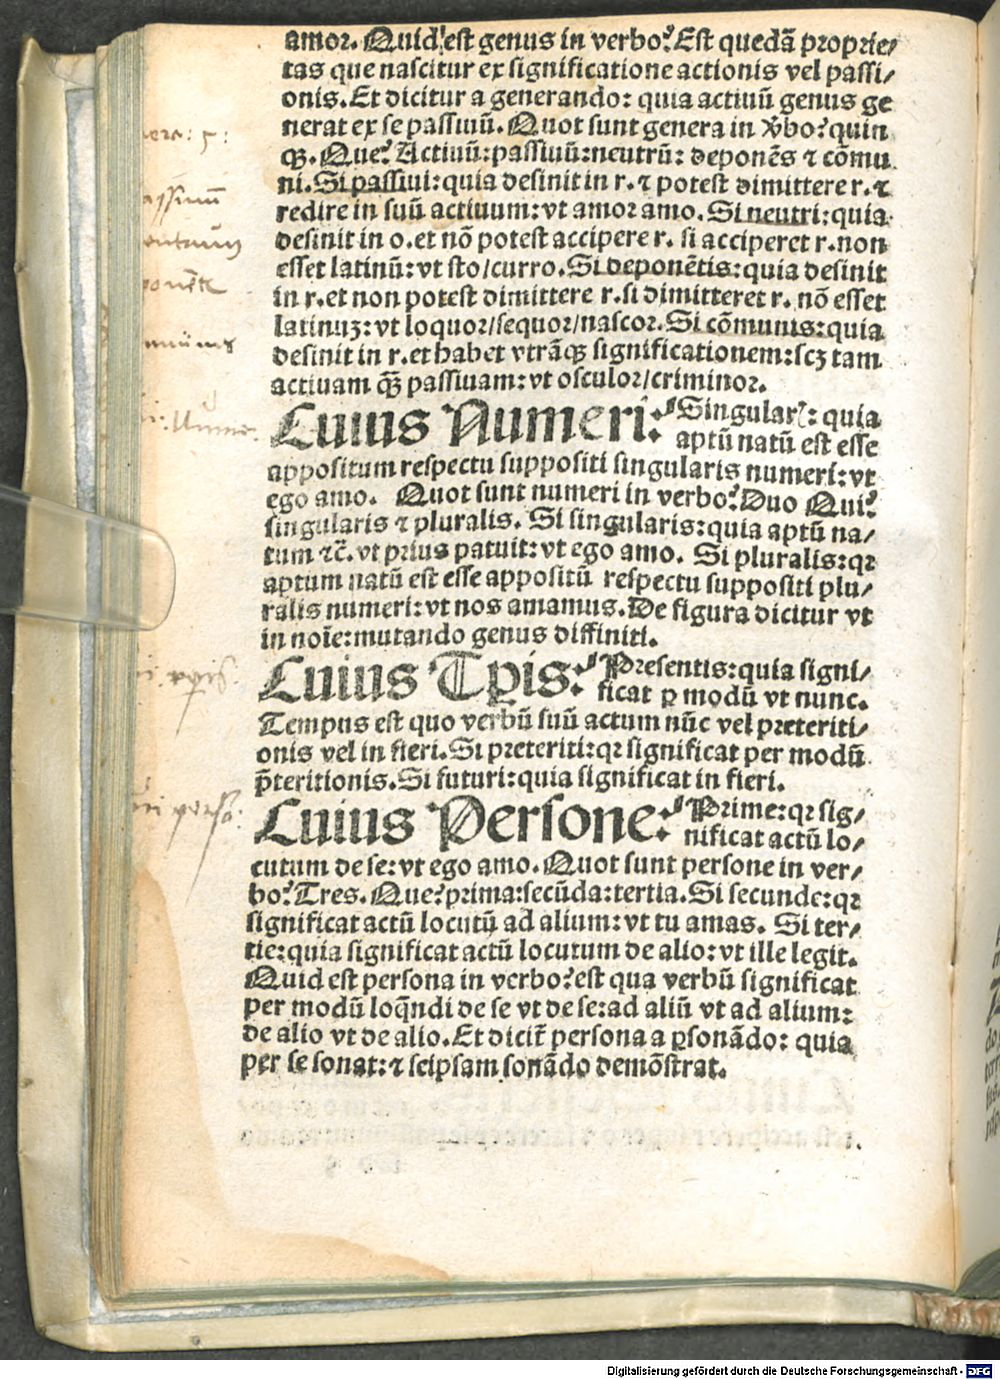 amor. Quid est genus in verbo? Est quedā proprie/
tas que nascitur ex significatione actionis vel passi/
onis. Et dicitur a generando: quia actiuū genus ge
nerat ex se passiuū. Quot sunt genera in ꝟbo? quin
qꝫ. Que? Actiuū: passiuū: neutrū: deponēs ⁊ cōmu
ni. Si passiui: quia desinit in r. ⁊ potest dimittere r. ⁊
redire in suū actiuum: vt amor amo. Si neutri: quia
desinit in o. et nō potest accipere r. si acciperet r. non
esset latinū: vt sto/curro. Si deponētis: quia desinit
in r. et non potest dimittere r. si dimitteret r. nō esset
latinuꝫ: vt loquor/sequor/nascor. Si cōmunis: quia
desinit in r. et habet vtrāqꝫ significationem: scꝫ tam
actiuam qꝫ̄ passiuam: vt osculor/criminor.
Cuius Numeri? Singularꝭ: quia
aptū natū est esse
appositum respectu suppositi singularis numeri: vt
ego amo. Quot sunt numeri in verbo? Duo Qui?
singularis ⁊ pluralis. Si singularis: quia aptū na/
tum ⁊c̄. vt prius patuit: vt ego amo. Si pluralis: qꝛ
aptum natū est esse appositū respectu suppositi plu/
ralis numeri: vt nos amamus. De figura dicitur vt
in noīe: mutando genus diffiniti.
Cuius Tꝑis? Presentis: quia signi/
ficat ꝑ modū vt nunc.
Tempus est quo verbū suū actum nūc vel preteriti/
onis vel in fieri. Si preteriti: qꝛ significat per modū
p̄teritionis. Si futuri: quia significat in fieri.
Cuius Persone? Prime: qꝛ sig/
nificat actū lo/
cutum de se: vt ego amo. Quot sunt persone in ver/
bo? Tres. Que? prima: secūda: tertia. Si secunde: qꝛ
significat actū locutū ad alium: vt tu amas. Si ter/
tie: quia significat actū locutum de alio: vt ille legit.
Quid est persona in verbo? est qua verbū significat
per modū loq̄ndi de se vt de se: ad aliū vt ad alium:
de alio vt de alio. Et dicit̄ persona a ꝑsonādo: quia
per se sonat: ⁊ seipsam sonādo demōstrat.
Digitalisierung gefördert durch die Deutsche Forschungsgemeinschaft - DFG